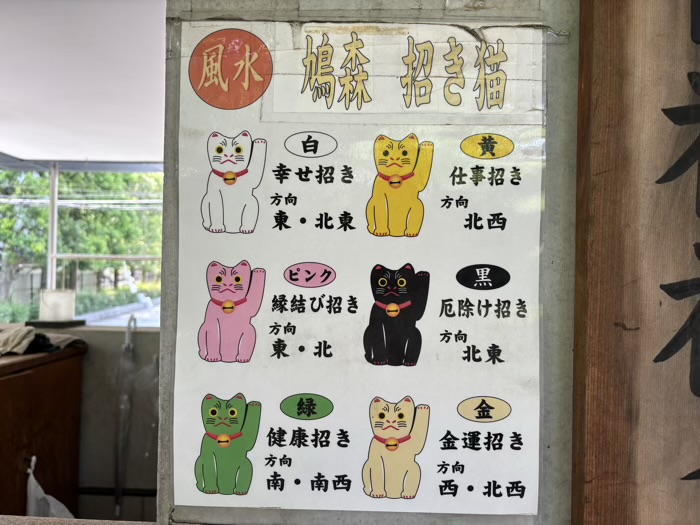 風水
鳩森 招き猫
白
幸せ招き
方向
東・北東
黄
仕事招き
方向
北西
ピンク
縁結び招き
方向
東・北
黒
厄除け招き
方向
北東
緑
健康招き
方向
南・南西
金
金運招き
方向
西・北西